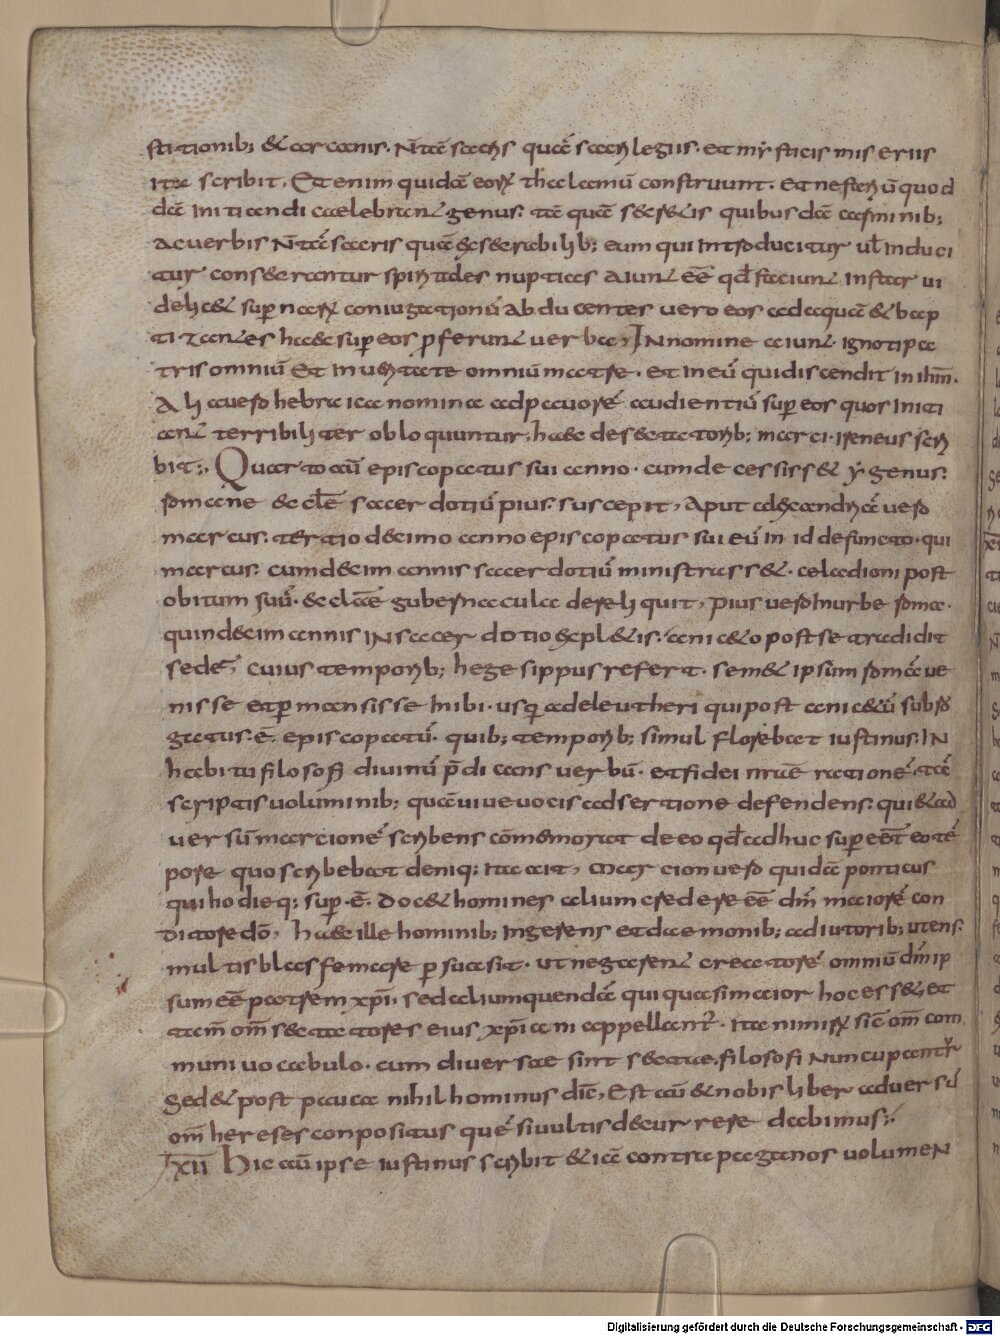 stitionib; & arcanis. N̄ tā sacris quā sacrilegiis. Et mysteriis miseriis
ita scribit, Et enim quidā eorꝝ thalamū construunt. Et nefariū quod
dā initiandi caelebrant genus. tā quā secretis quibusdā carminib;
ac verbis N̄ tā sacris quā exsecrabilib; eum qui introducitur ut induci
tur consecrantur spiritales nuptias aiunt eē qđ faciunt instar vi
delic& supernarꝝ coniugationū abducentes vero eos ad aquā & bap
tizantes haec super eos ꝓferunt verba, In nomine aiunt ignoti pa
tris omniū Et in veritate omniū matre. Et in eū qui discendit in ihm̄.
Alii avero hebraica nomina ad pavorē audientiū super eos quos initi
ant terribiliter obloquuntur, haec de sectatorib; marci. ireneus scri
bit;, Quarto aū episcopatus sui anno. cum decessiss& ygenus.
romane aecl̄e sacerdotiū pius suscepit, Aput alexandriā vero
marcus. tertio decimo anno episcopatus sui eū in id defuncto. qui
marcus. cum decim annis sacerdotiū ministrass&. celadioni post
obitum suū. aeclaē gubernacula dereliquit, pius vero in urbe roma.
quindecim annis in sacerdotio expletis. anic&o post se tradidit
sedē, cuius temporib; hegesippus refert. semet ipsum romā ve
nisse et permansisse inibi. usq; ad eleutheri qui post anic&ū subro
gatus. ē. episcopatū. quib; temporib; simul florebat iustinus. IN
habitu filosofi divinū p̄dicans verbū. et fidei nr̄ae rationē. tā
scriptis voluminib; quā vive vocis adsertione defendens. qui & ad
versū marcionē scribens cōmemorat de eo qđ adhuc super eēt eo tē
pore quo scribebat deniq; ita ait, Marcion vero quidā ponticus
qui hodieq; super. ē. Doc& homines alium credere eē dm̄ maiorē con
ditore dō, haec ille hominib; ingerens et daemonib; adiutorib; utens.
multis blasfemare persuasit. ut negarent creatorē omniū dm̄ ip
sum eē patrem xpī. sed alium quendā qui quasi maior hoc ess&, et
tam̄ om̄s sectatores eius xpīani appellant̄. ita nimirꝝ sic om̄ com
muni vocabulo. cum diversae sint sectae. filosofi nuncupant̄r
sed & post pauca nihilhominus dīc, Est aū & nobis liber adversū
om̄ hereses conpositus quē si vultis decurrere dabimus;
XII Hic aū ipse iustinus scribit & iā contra paganos volumen
Digitalisierung gefördert durch die Deutsche Forschungsgemeinschaft - DFG